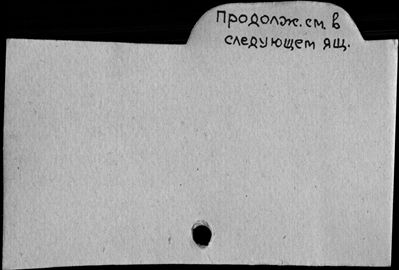 Продолж. см. в
следующем ящ.